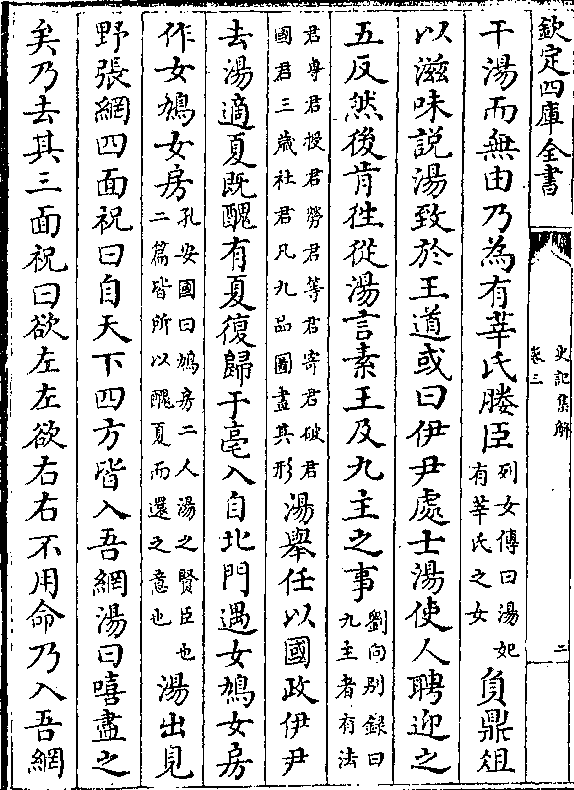 欽定四庫全書
史記集解
卷三
二
干湯而無由乃為有莘氏媵臣列女傳曰湯妃有莘氏之女負鼎俎
以滋味說湯致於王道或曰伊尹處士湯使人聘迎之
五反然後肯徃從湯言素王及九主之事劉向别録曰九主者有法
君專君授君勞君等君寄君破君國君三歲社君凡九品圖畫其形湯舉任以國政伊尹
去湯適夏既醜有夏復歸于亳入自北門遇女鳩女房
作女鳩女房孔安國曰鳩房二人湯之賢臣也二篇皆所以醜夏而還之意也湯出見
野張網四面祝曰自天下四方皆入吾網湯曰嘻盡之
矣乃去其三面祝曰欲左左欲右右不用命乃入吾網